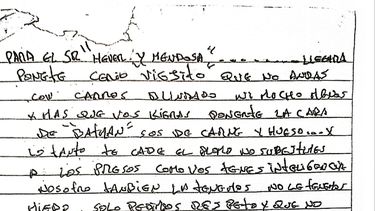 PARA EL SR "MENEM Y MENDOSA" ......... LLEGADA
PONETE CENIO VIEJITO QUE NO ANDAS
CON CARROS BLINDADO NI MUCHO MENOS
X MAS QUE VOS KIERAS PONERTE LA CARA
DE "BATMAN" SOS DE CARNE Y HUESO... X
LO TANTO TE CABE EL PLOMO NO SUBESTIMES
A LOS PRESOS COMO VOS TENES INTELIGENCIA
NOSOTRO TANBIEN LA TENEMOS NO LE TENEMOS
MIEDO SOLO PEDIMOS RESPETO Y QUE NO